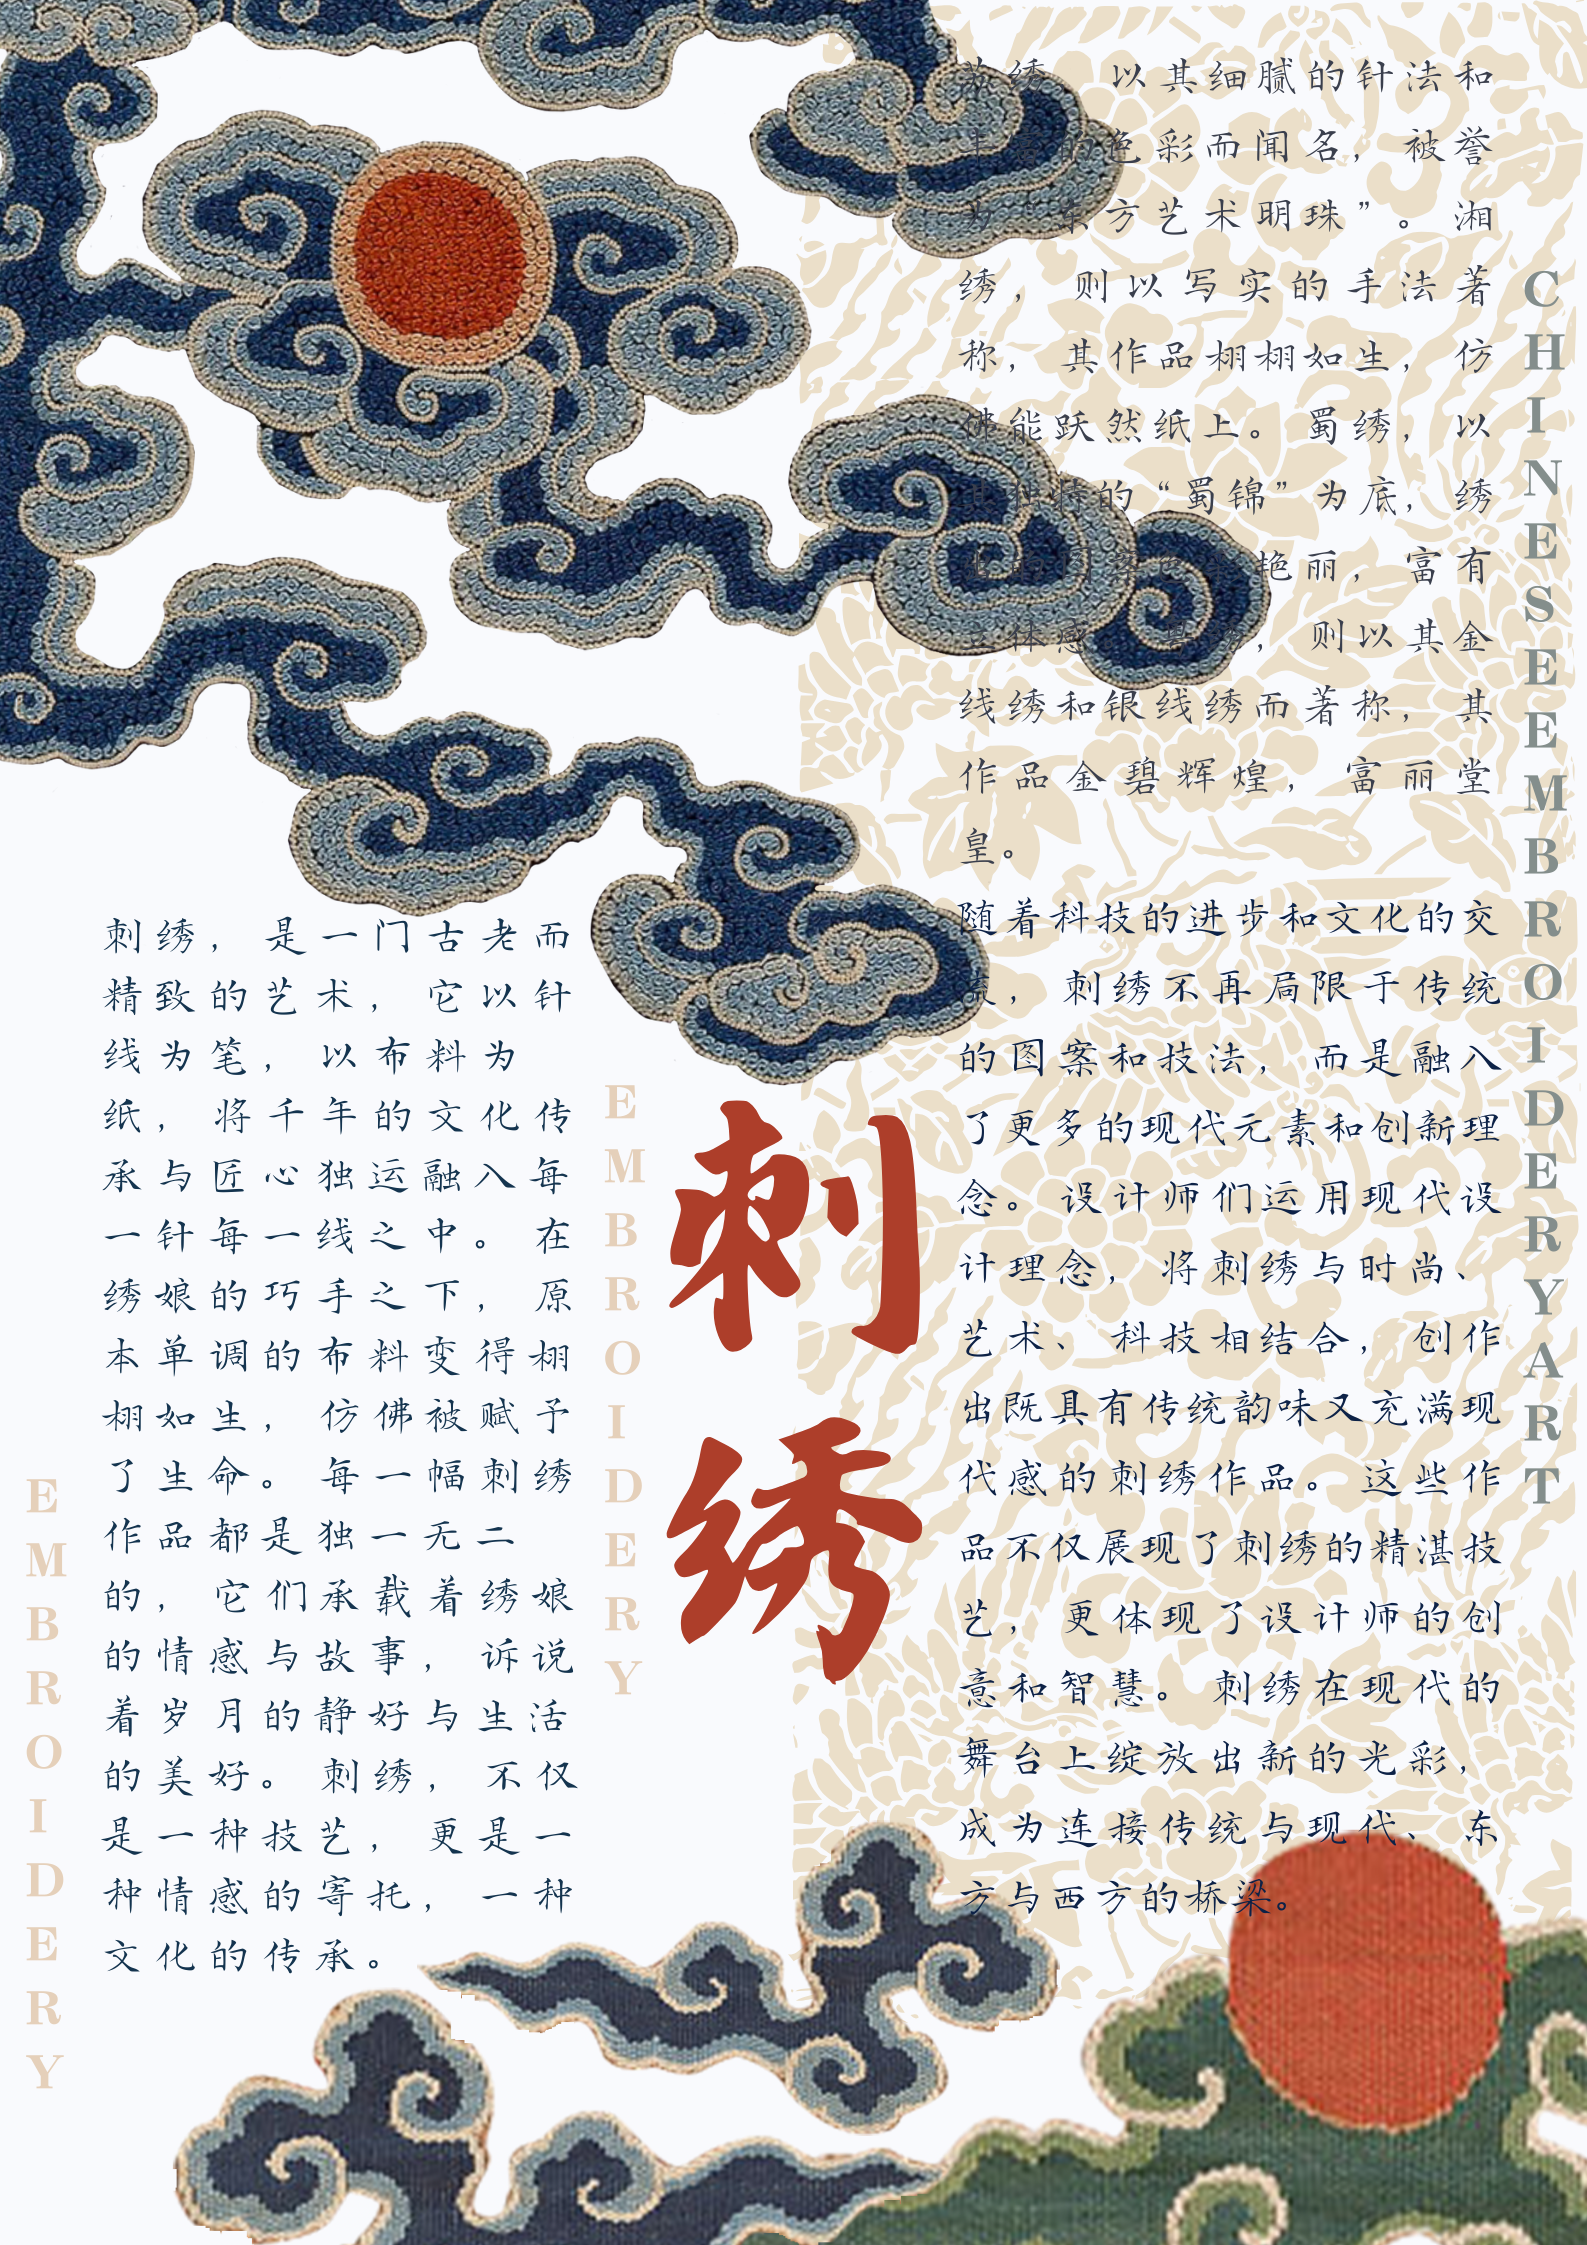 刺绣，是一门古老而
精致的艺术，它以针
线为笔，以布料为
纸，将千年的文化传
承与匠心独运融入每
一针每一线之中。在
绣娘的巧手之下，原
本单调的布料变得栩
栩如生，仿佛被赋予
了生命。每一幅刺绣
作品都是独一无二
的，它们承载着绣娘
的情感与故事，诉说
着岁月的静好与生活
的美好。刺绣，不仅
是一种技艺，更是一
种情感的寄托，一种
文化的传承。
EMBROIDERY
EMBROIDERY
刺绣
苏绣，以其细腻的针法和
的色彩而闻名，被誉
为“东方艺术明珠”。湘
绣，则以写实的手法著
称，其作品栩栩如生，仿
佛能跃然纸上。蜀绣，以
其独特的“蜀锦”为底，绣
艳丽，富有
立体感。粤绣，则以其金
线绣和银线绣而著称，其
作品金碧辉煌，富丽堂
皇。
随着科技的进步和文化的交
流，刺绣不再局限于传统
的图案和技法，而是融入
了更多的现代元素和创新理
念。设计师们运用现代设
计理念，将刺绣与时尚、
艺术、科技相结合，创作
出既具有传统韵味又充满现
代感的刺绣作品。这些作
品不仅展现了刺绣的精湛技
艺，更体现了设计师的创
意和智慧。刺绣在现代的
舞台上绽放出新的光彩，
成为连接传统与现代、东
方与西方的桥梁。
CHINESEEMBROIDERYART